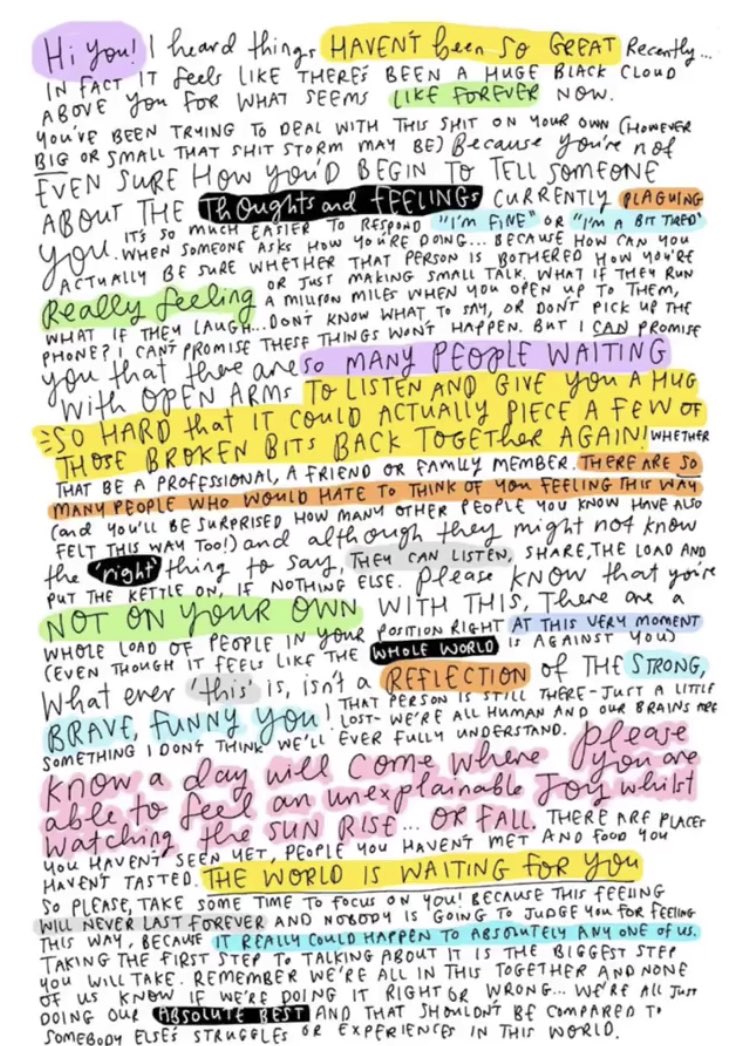 Hi you! I heard things HAVEN'T been SO GREAT Recently...
IN FACT IT feels LIKE THERE'S BEEN A HUGE BLACK CLOUD
ABOVE You FOR WHAT SEEMS LIKE FOREVER NOW.
YOU'VE BEEN TRYING TO DEAL WITH THIS SHIT ON YOUR OWN (HOWEVER
BIG OR SMALL THAT SHIT STORM MAY BE) Because you're not
EVEN SURE HOW YOU'D BEGIN TO TELL SOMEONE
ABOUT THE Thoughts and FEELINGS CURRENTLY PLAGUING
you. IT'S SO MUCH EASIER TO RESPOND "I'M FINE" OR "I'M A BIT TIRED"
WHEN SOMEONE ASKS HOW YOU'RE DOING... BECAUSE HOW CAN YOU
ACTUALLY BE SURE WHETHER THAT PERSON IS BOTHERED HOW YOU'RE
Really feeling OR JUST MAKING SMALL TALK. WHAT IF THEY RUN
A MILLION MILES WHEN YOU OPEN UP TO THEM,
WHAT IF THEY LAUGH...DON'T KNOW WHAT TO SAY, OR DON'T PICK UP THE
PHONE? I CAN'T PROMISE THESE THINGS WON'T HAPPEN. BUT I CAN PROMISE
you that there are SO MANY PEOPLE WAITING
With OPEN ARMS TO LISTEN AND GIVE YOU A HUG
SO HARD that IT COULD ACTUALLY PIECE A FEW OF
THOSE BROKEN BITS BACK TOGETHER AGAIN! WHETHER
THAT BE A PROFESSIONAL, A FRIEND OR FAMILY MEMBER. THERE ARE SO
MANY PEOPLE WHO WOULD HATE TO THINK OF YOU FEELING THIS WAY
(and YOU'LL BE SURPRISED HOW MANY OTHER PEOPLE YOU KNOW HAVE ALSO
FELT THIS WAY TOO!) and although they might not know
the 'right' thing to say, THEY CAN LISTEN, SHARE, THE LOAD AND
PUT THE KETTLE ON, IF NOTHING ELSE. please KNOW that you're
NOT ON YOUR OWN WITH THIS, THERE ARE A
WHOLE LOAD OF PEOPLE IN YOUR POSITION RIGHT AT THIS VERY MOMENT
(EVEN THOUGH IT FEELS LIKE THE WHOLE WORLD IS AGAINST YOU)
What ever 'this' is, isn't a REFLECTION of THE STRONG,
BRAVE, FUNNY YOU! THAT PERSON IS STILL THERE-JUST A LITTLE
LOST- WE'RE ALL HUMAN AND OUR BRAINS ARE
SOMETHING I DON'T THINK WE'LL EVER FULLY UNDERSTAND. please
know a day will come where you are
able to feel an unexplainable Joy whilst
watching the SUN RISE... OR FALL. THERE ARE PLACES
YOU HAVEN'T SEEN YET, PEOPLE YOU HAVEN'T MET AND FOOD YOU
HAVEN'T TASTED. THE WORLD IS WAITING FOR YOU
SO PLEASE, TAKE SOME TIME TO FOCUS ON YOU! BECAUSE THIS FEELING
WILL NEVER LAST FOREVER AND NOBODY IS GOING TO JUDGE YOU FOR FEELING
THIS WAY, BECAUSE IT REALLY COULD HAPPEN TO ABSOLUTELY ANY ONE OF US.
TAKING THE FIRST STEP TO TALKING ABOUT IT IS THE BIGGEST STEP
YOU WILL TAKE. REMEMBER WE'RE ALL IN THIS TOGETHER AND NONE
OF US KNOW IF WE'RE DOING IT RIGHT OR WRONG... WE'RE ALL JUST
DOING OUR ABSOLUTE BEST AND THAT SHOULDN'T BE COMPARED TO
SOMEBODY ELSE'S STRUGGLES OR EXPERIENCES IN THIS WORLD.